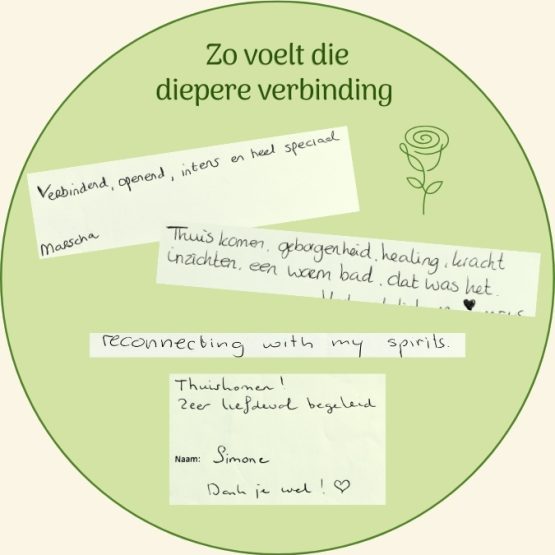 Zo voelt die
diepere verbinding
Verbindend, openend, intens en heel speciaal
Marscha
Thuis komen, geborgenheid, healing, kracht
inzichten, een warm bad, dat was het.
reconnecting with my spirits.
Thuiskomen!
Zeer liefdevol begeleid
Naam: Simone
Dank je wel! ♡